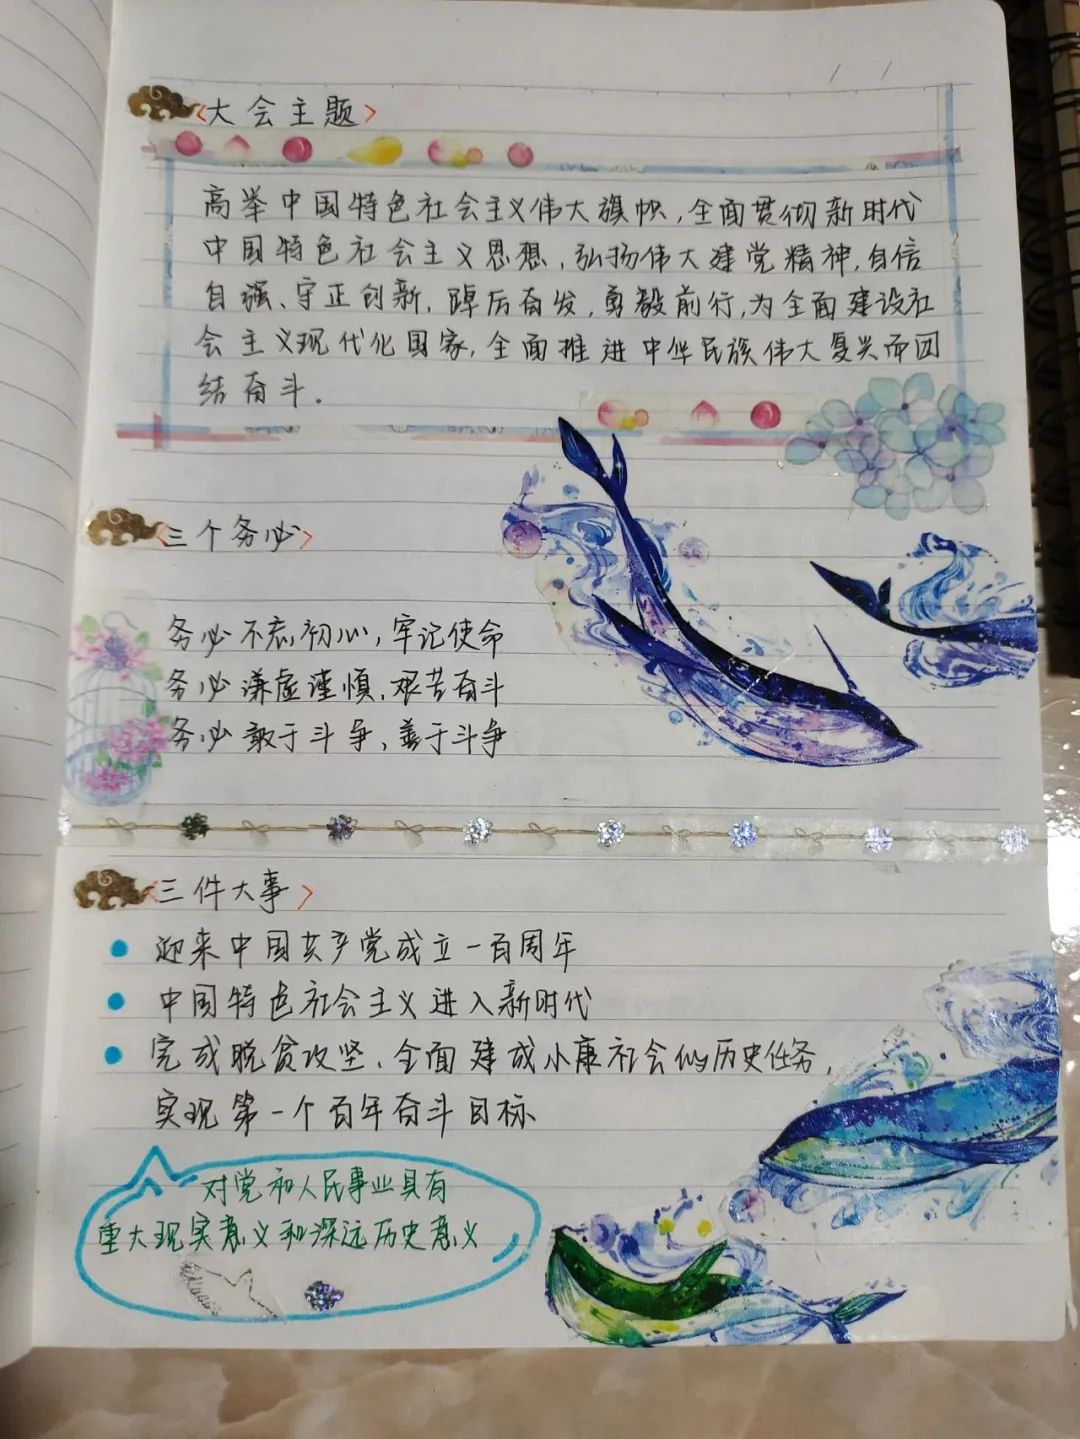 〈大会主题〉
高举中国特色社会主义伟大旗帜,全面贯彻新时代
中国特色社会主义思想,弘扬伟大建党精神,自信
自强、守正创新,踔厉奋发,勇毅前行,为全面建设社
会主义现代化国家,全面推进中华民族伟大复兴而团
结奋斗。
〈三个务必〉
务必不忘初心,牢记使命
务必谦虚谨慎,艰苦奋斗
务必敢于斗争,善于斗争
〈三件大事〉
迎来中国共产党成立一百周年
中国特色社会主义进入新时代
完成脱贫攻坚、全面建成小康社会的历史任务,
实现第一个百年奋斗目标
对党和人民事业具有
重大现实意义和深远历史意义